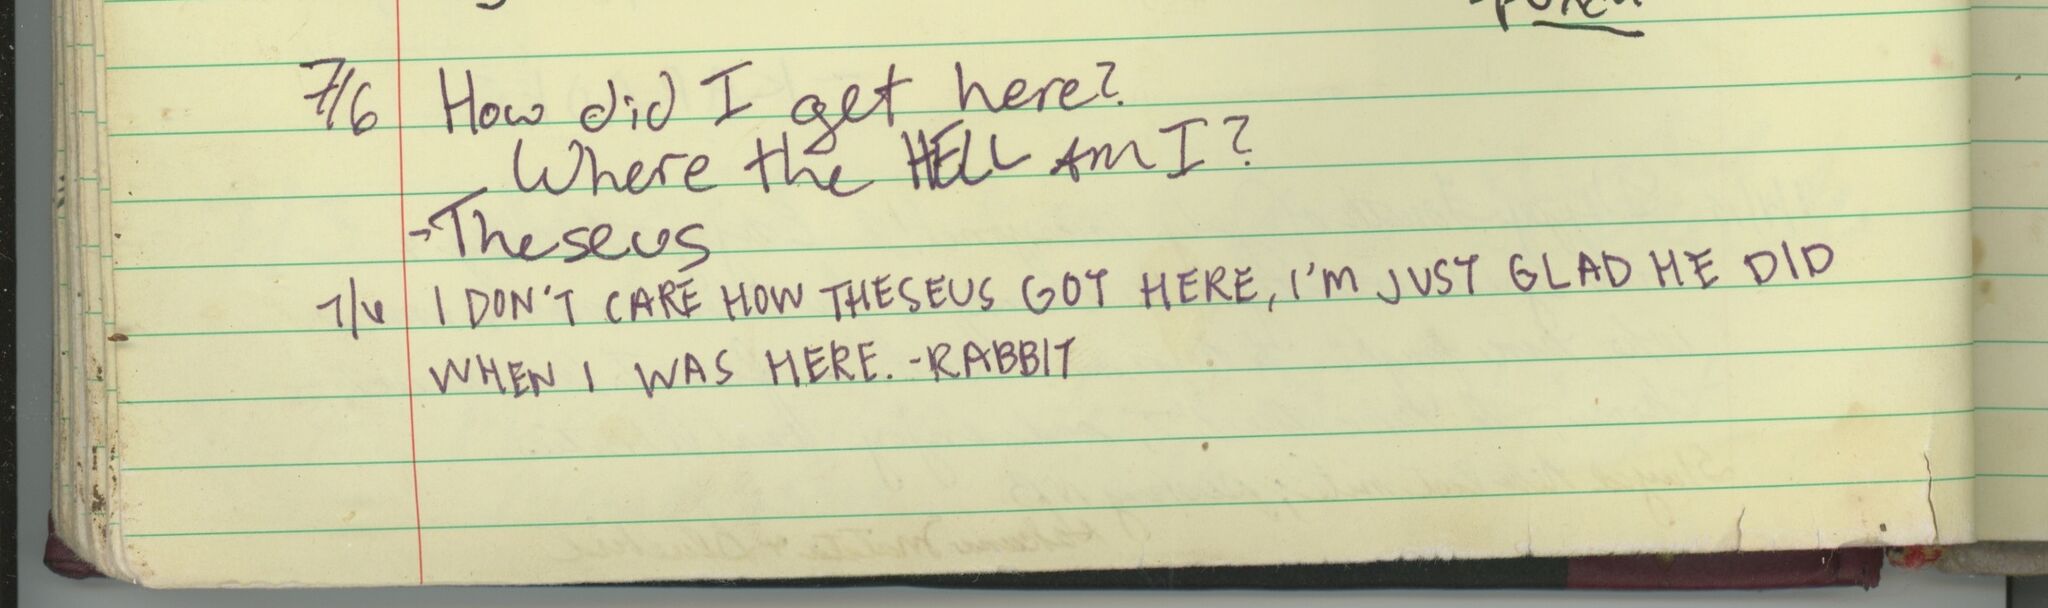 7/6 How did I get here?
Where the HELL Am I?
→Theseus
7/6 I DON'T CARE HOW THESEUS GOT HERE, I'M JUST GLAD HE DID
WHEN I WAS HERE. -RABBIT